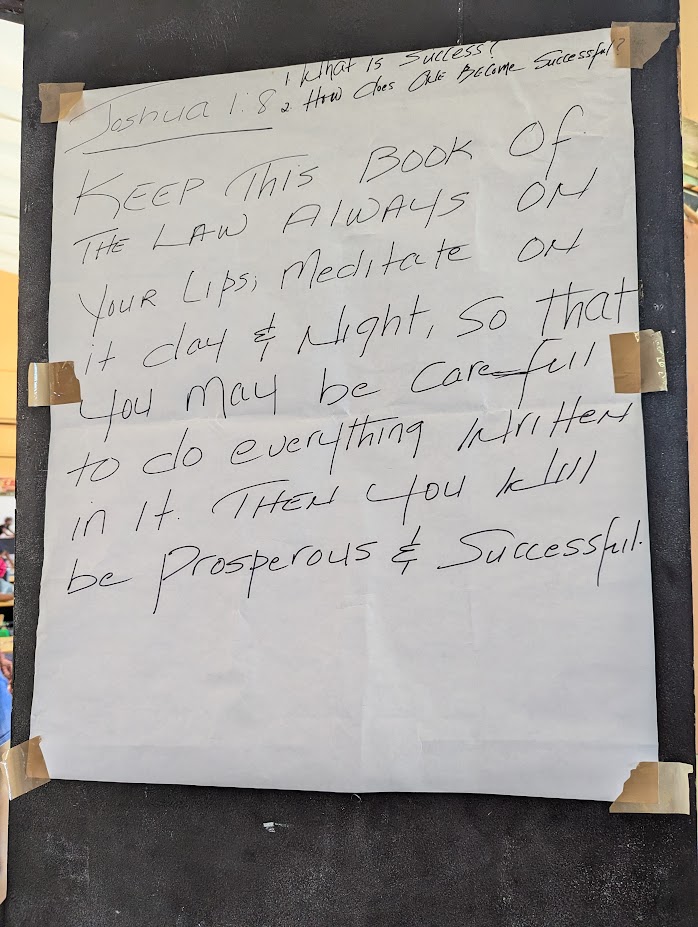 1. What is success?
Joshua 1:8 2. How does one become successful?
KEEP This BOOK OF
THE LAW ALWAYS ON
YOUR Lips; Meditate ON
it day & Night, so that
you may be careful
to do everything written
in it. THEN you will
be Prosperous & Successful.